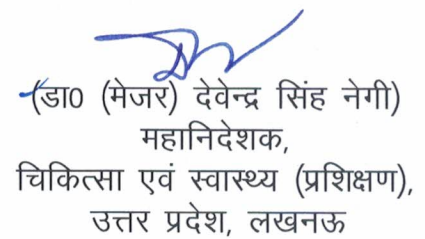 (डा0 (मेजर) देवेन्द्र सिंह नेगी)
महानिदेशक,
चिकित्सा एवं स्वास्थ्य (प्रशिक्षण),
उत्तर प्रदेश, लखनऊ